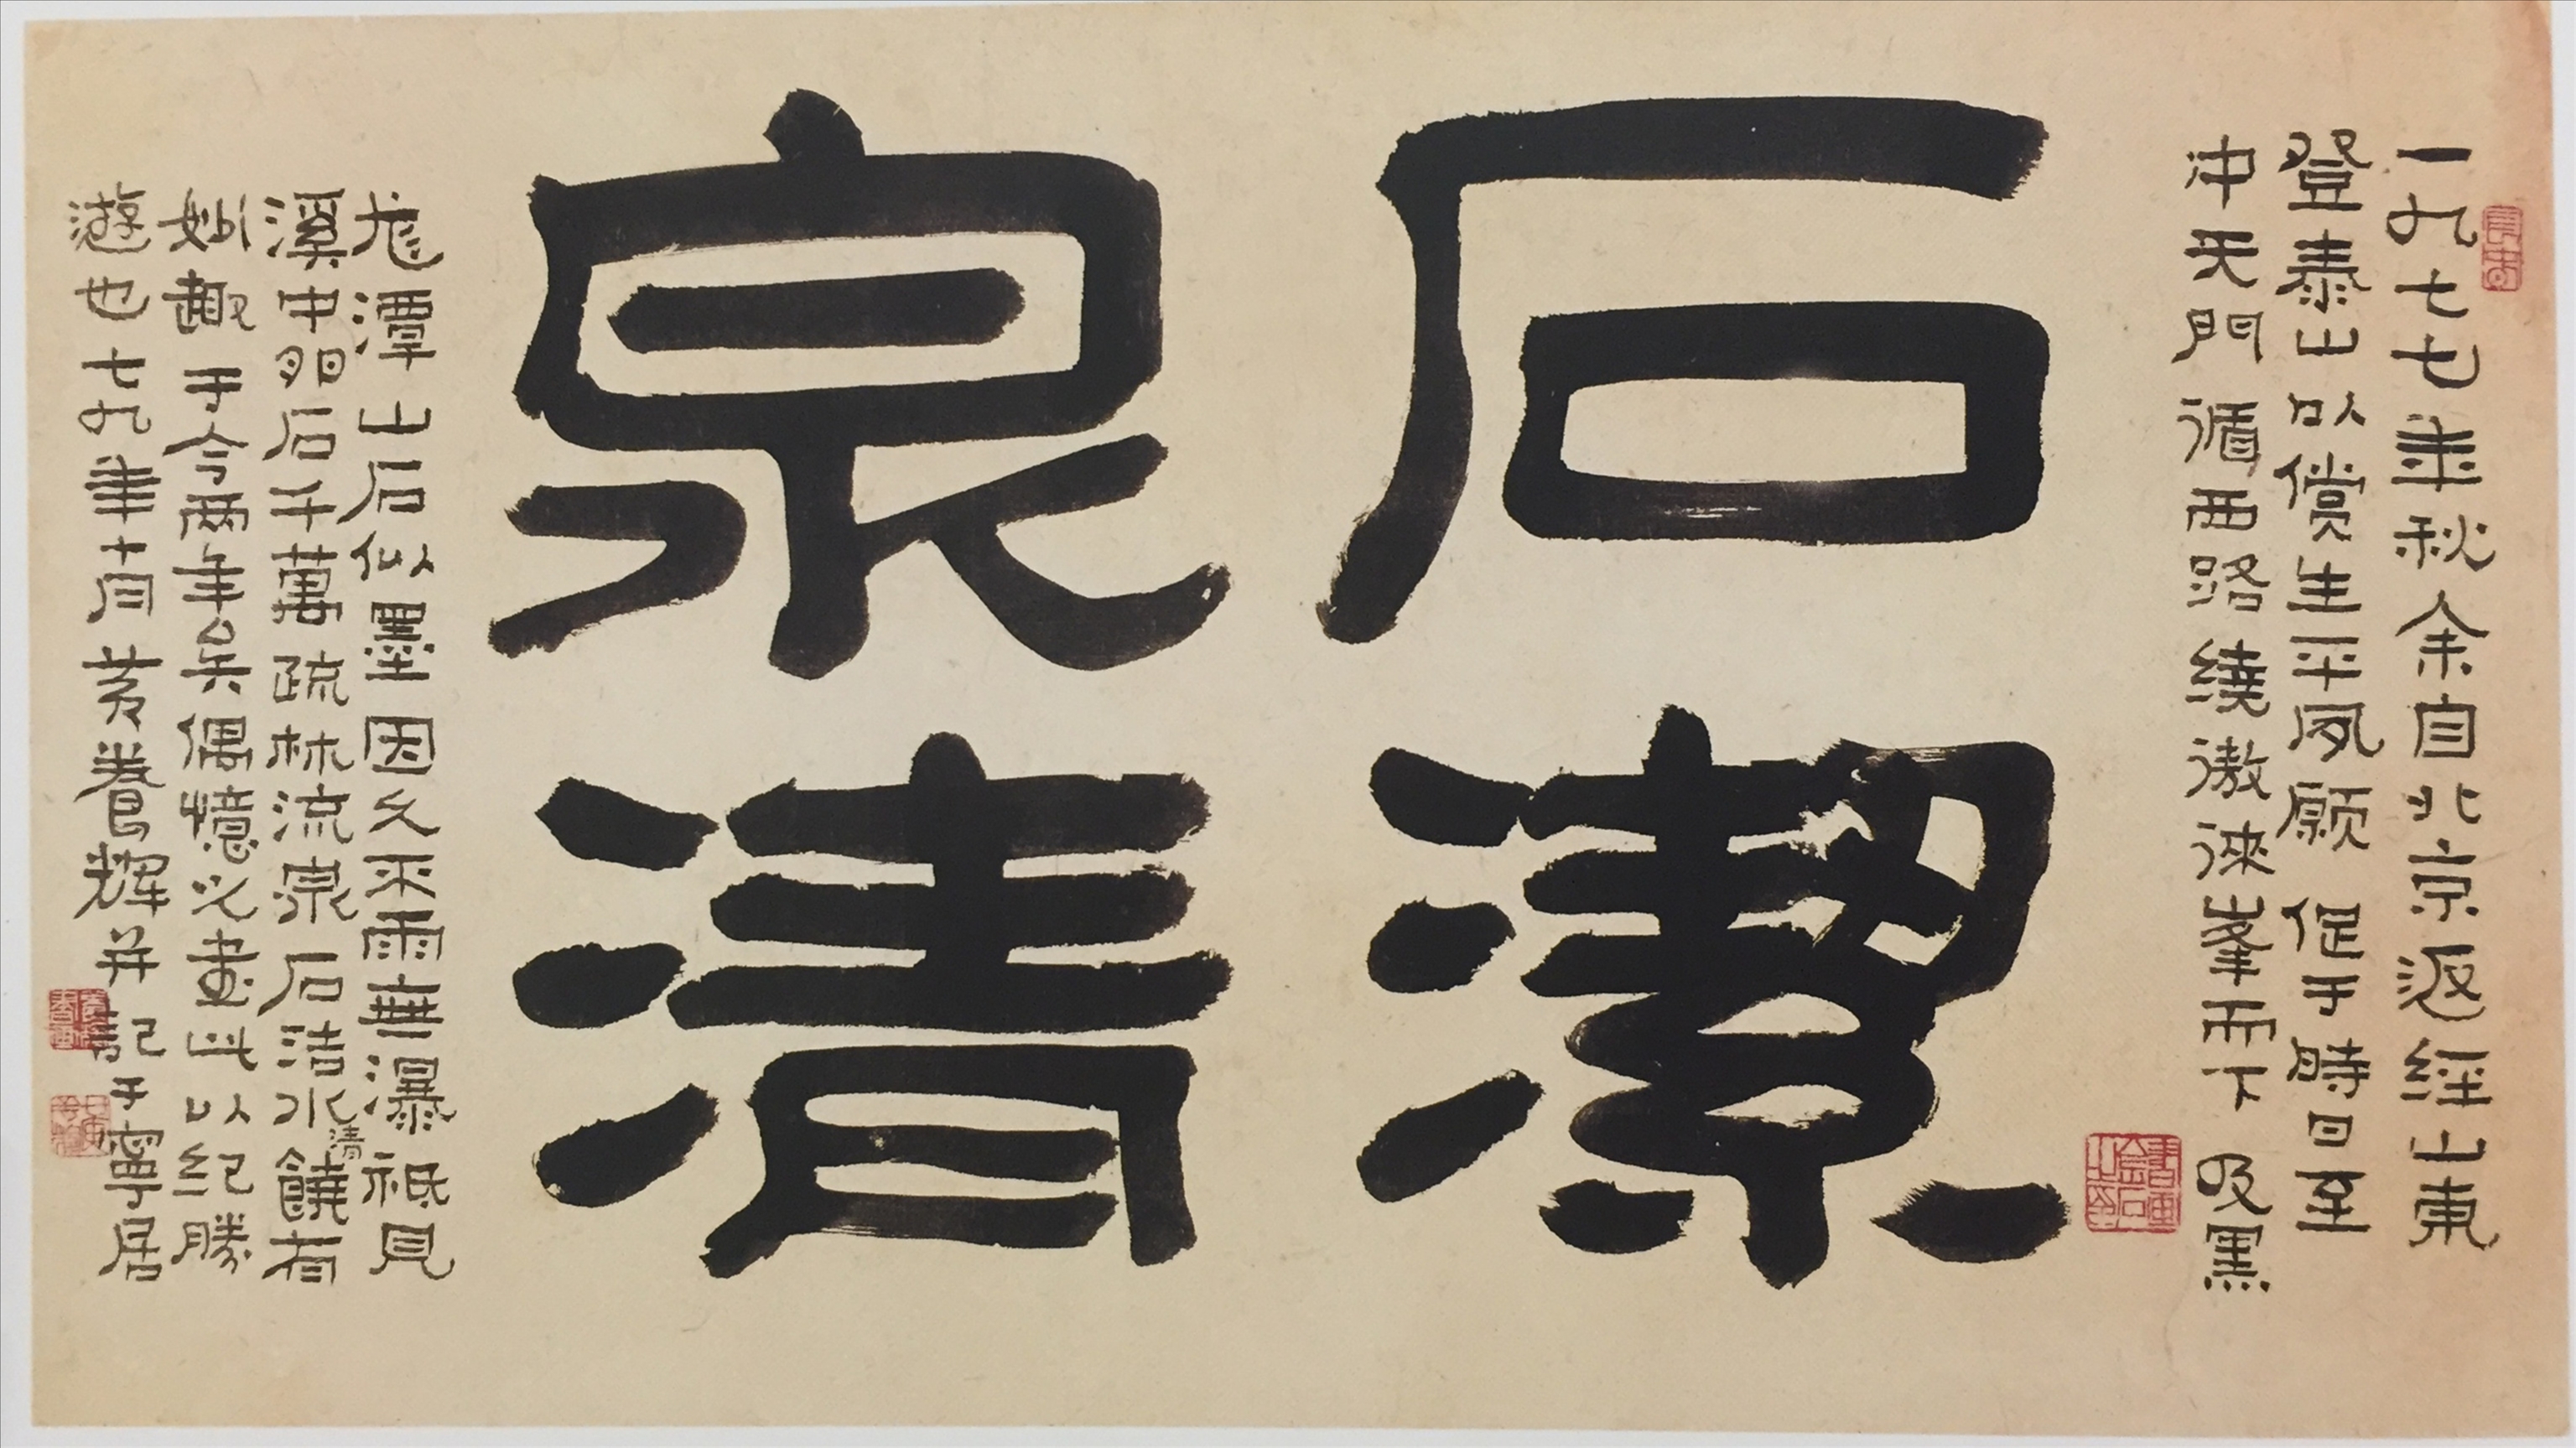 一九七七年秋余自北京返經山東
登泰山以償生平夙願促于時日至
沖天門循西路繞傲徠峯而下及黑
石潔
泉清
尨潭山石似墨因久不雨無瀑祗見
溪中卵石千萬疏林流泉石洁水清饒有
妙趣于今两年矣偶憶之畫此以紀勝
遊也七九年十月黃養輝并記于寧居